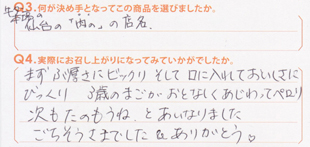 Q3.何が決め手となってこの商品を選びましたか。
仙台の「肉の」の店名
Q4.実際にお召し上がりになってみていかがでしたか。
まずぶ厚さにビックリ そして口に入れておいしさに
びっくり 3歳のまごがおとなしくあじわってペロリ
次もたのもうね、とあいなりました
ごちそうさまでした & ありがとう♡